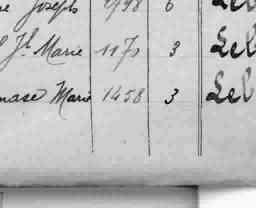 Joseph 1998 6 Leb
Jh Marie 1171 3 Leb
mase Marie 1458 3 Leb